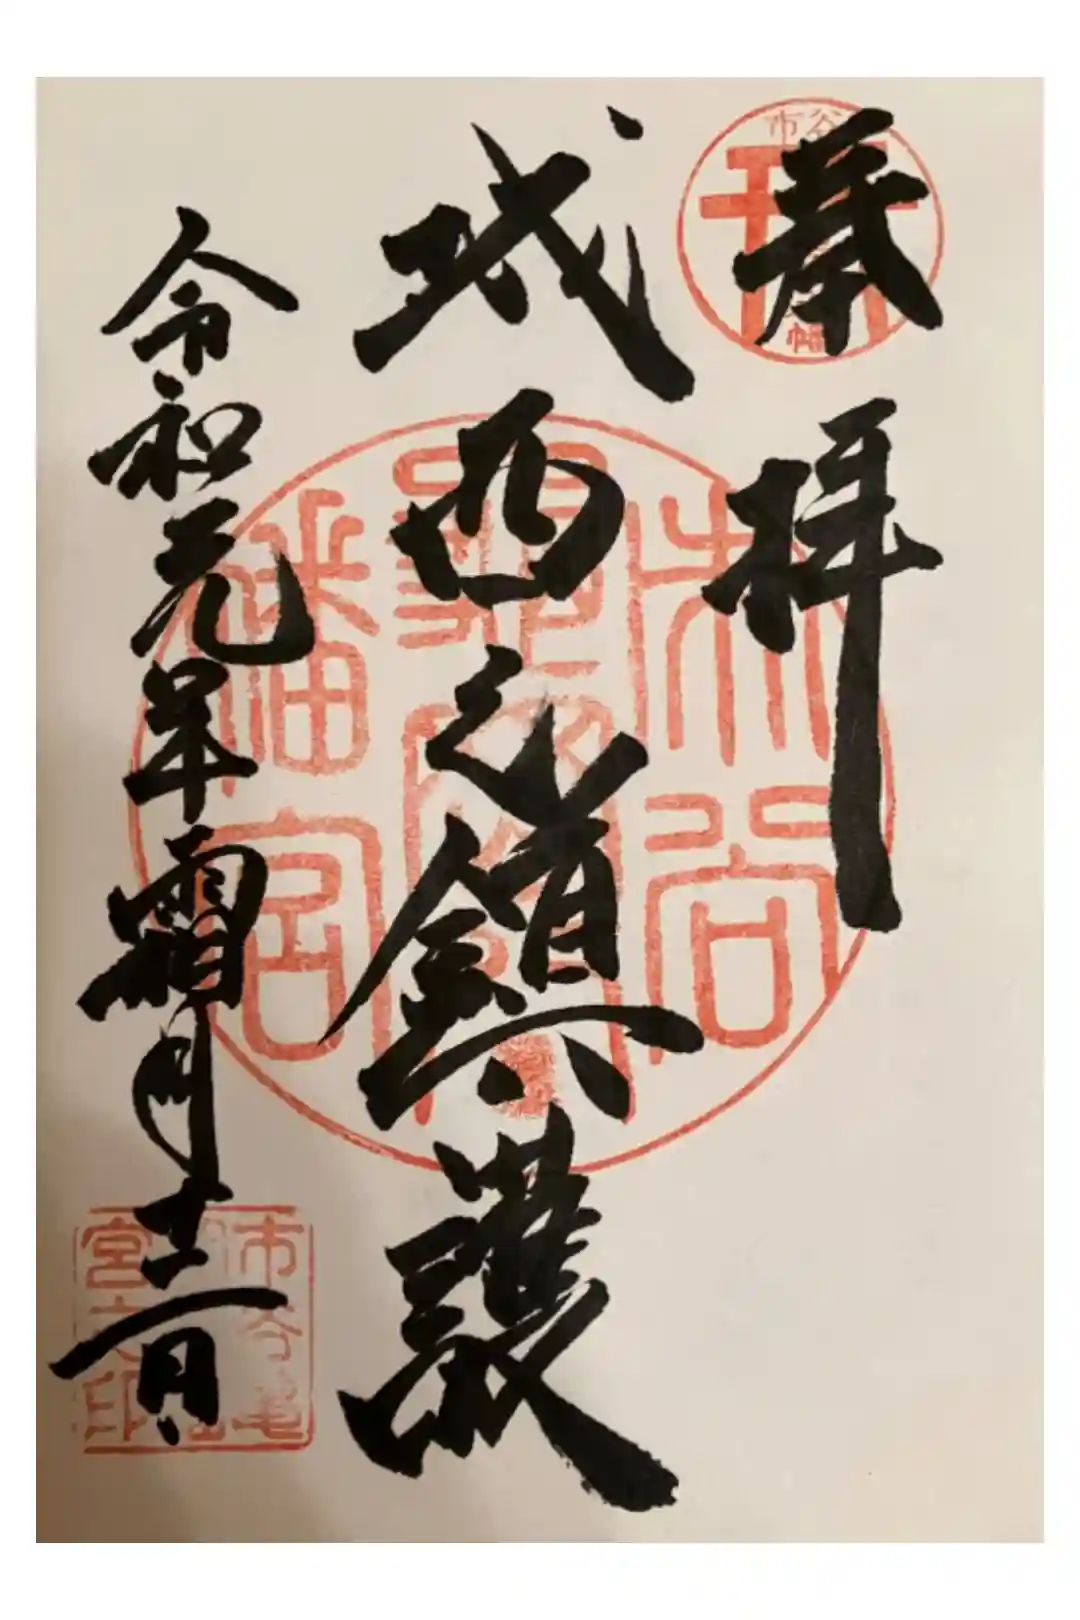 市谷
幡
奉拝
市谷
亀岡八
幡宮
城西之鎮護
令和元年霜月十二日
市谷亀
宮之印